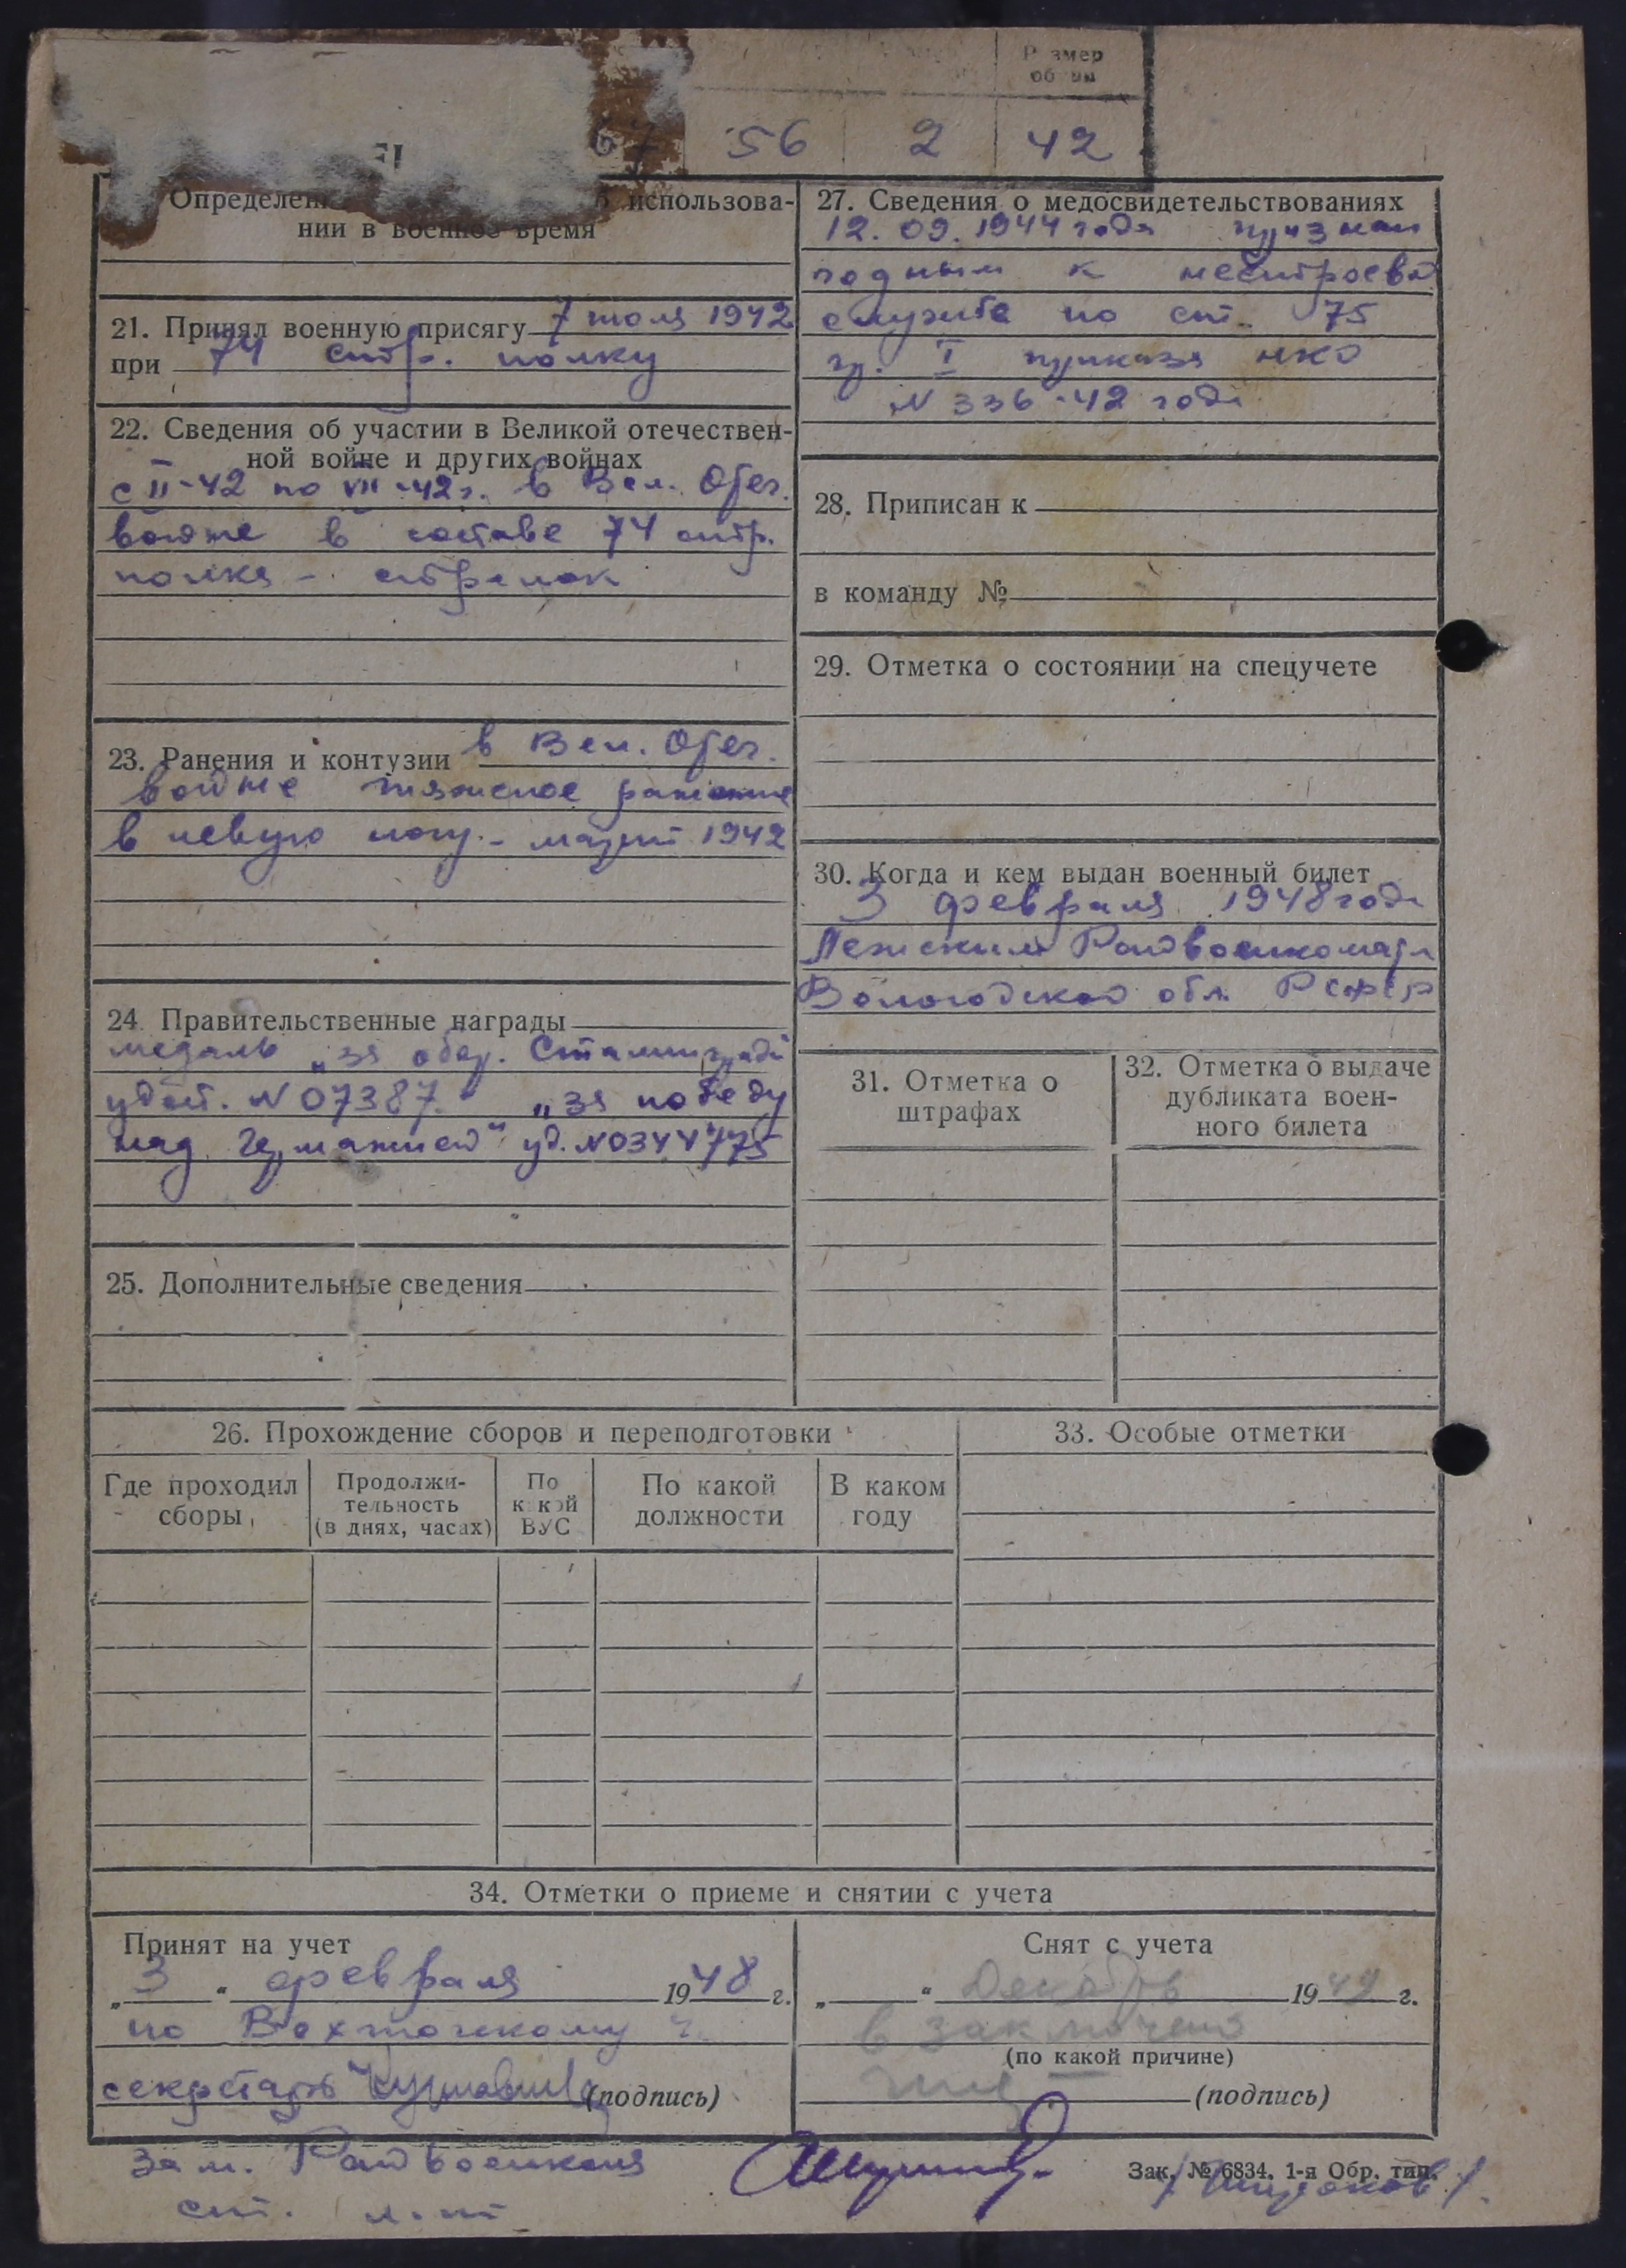 Размер
67 56 2 42
Определен использова-
нии в военное время
21. Принял военную присягу 7 июля 1942
при 74 стр. полку
22. Сведения об участии в Великой отечествен-
ной войне и других войнах
с II-42 по VII-42 г. в Вел. Отеч.
войне в составе 74 стр.
полка - стрелок
23. Ранения и контузии в Вел. Отеч.
войне тяжелое ранение
в левую ногу. - март 1942
24. Правительственные награды
медаль „за обор. Сталинграда
удост. N 07387. „за победу
над Германией" уд. N 0344775
25. Дополнительные сведения
27. Сведения о медосвидетельствованиях
12.09.1944 года признан
годным к нестроевой
службе по ст. 75
гр. I приказа НКО
N 336-42 года
28. Приписан к
в команду №
29. Отметка о состоянии на спецучете
30. Когда и кем выдан военный билет
3 февраля 1948 года
Лежским Райвоенкоматом
Вологодской обл. РСФСР
31. Отметка о
штрафах
32. Отметка о выдаче
дубликата воен-
ного билета
26. Прохождение сборов и переподготовки
Где проходил
сборы
Продолжи-
тельность
(в днях, часах)
По
какой
ВУС
По какой
должности
В каком
году
33. Особые отметки
34. Отметки о приеме и снятии с учета
Принят на учет
„3" февраля 1948 г.
по
секретарь (подпись)
Зам. Райвоенкома
ст. л-т
Снят с учета
„ " Декабрь 1949 г.
в заключено
(по какой причине)
(подпись)
Зак. № 6834. 1-я Обр. тип.